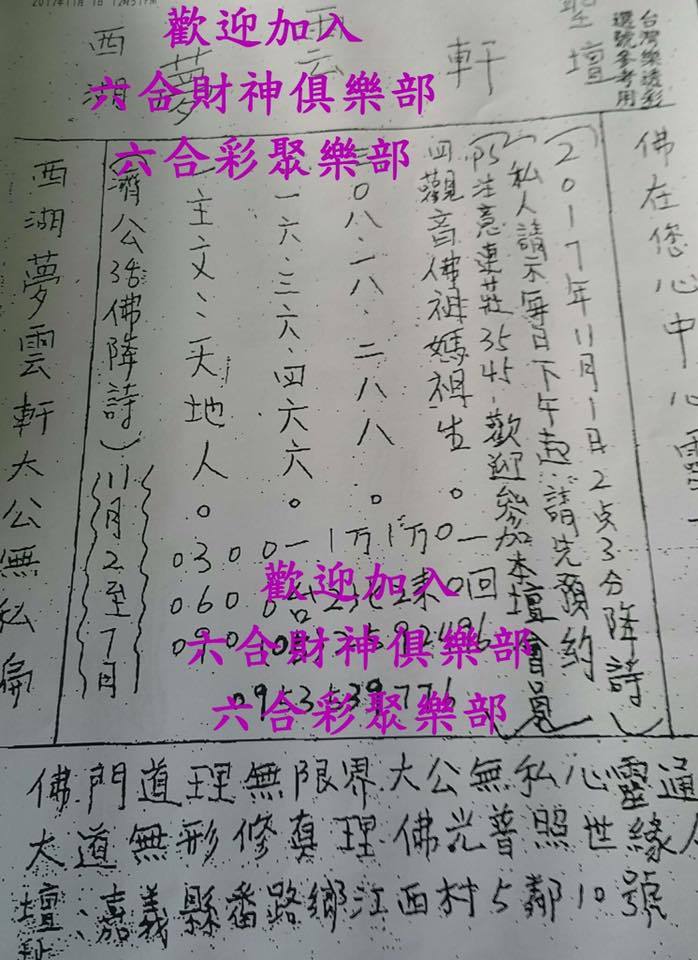 2017年11月1日
歡迎加入
六合財神俱樂部
六合彩聚樂部
西湖夢雲軒聖壇
台灣樂透彩
選號參考用
佛在您心中心靈
(2017年11月1日2点3分降詩)
(私人請示每日下午起請先預約)
(PS注意連莊35 45-歡迎參加本壇會員)
四觀音佛祖媽祖生。一回
二0八、一八、二八八。
一六、三六、四六六。
一主文:天地人。
030
060
090
(濟公活佛降詩)11月2至7日
西湖夢雲軒大公無私扁
歡迎加入
六合財神俱樂部
六合彩聚樂部
0953539776
佛門道理無限界大公無私心靈通
大道無形修真理佛光普照世緣人
壇址:嘉義縣番路鄉江西村5鄰10號